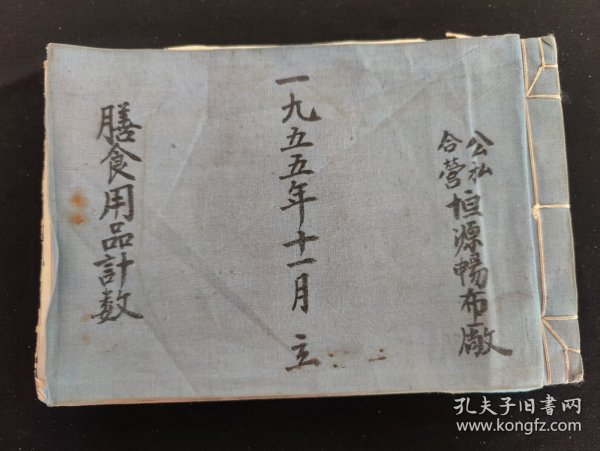 公私
合营恒源暢布廠
一九五五年十一月 立
膳食用品計数
孔夫子旧书网
www.kongfz.com